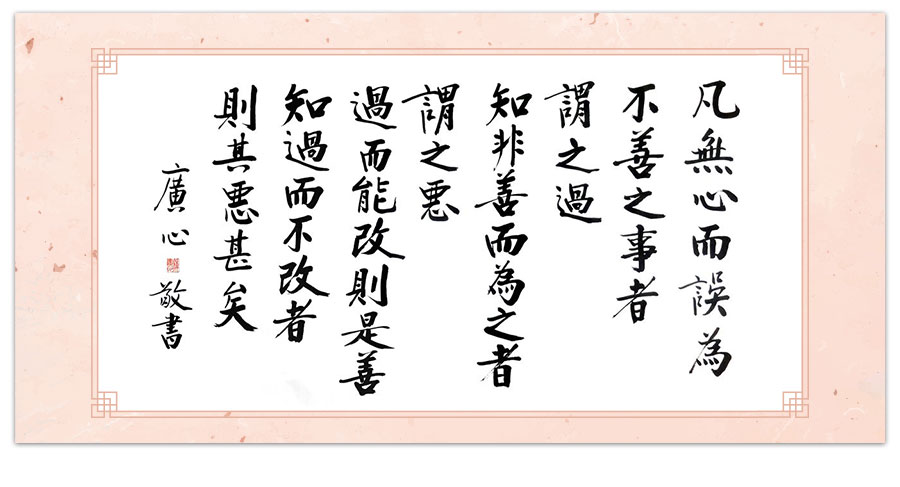 凡無心而誤為
不善之事者
謂之過
知非善而為之者
謂之惡
過而能改則是善
知過而不改者
則其惡甚矣
廣心
敬書